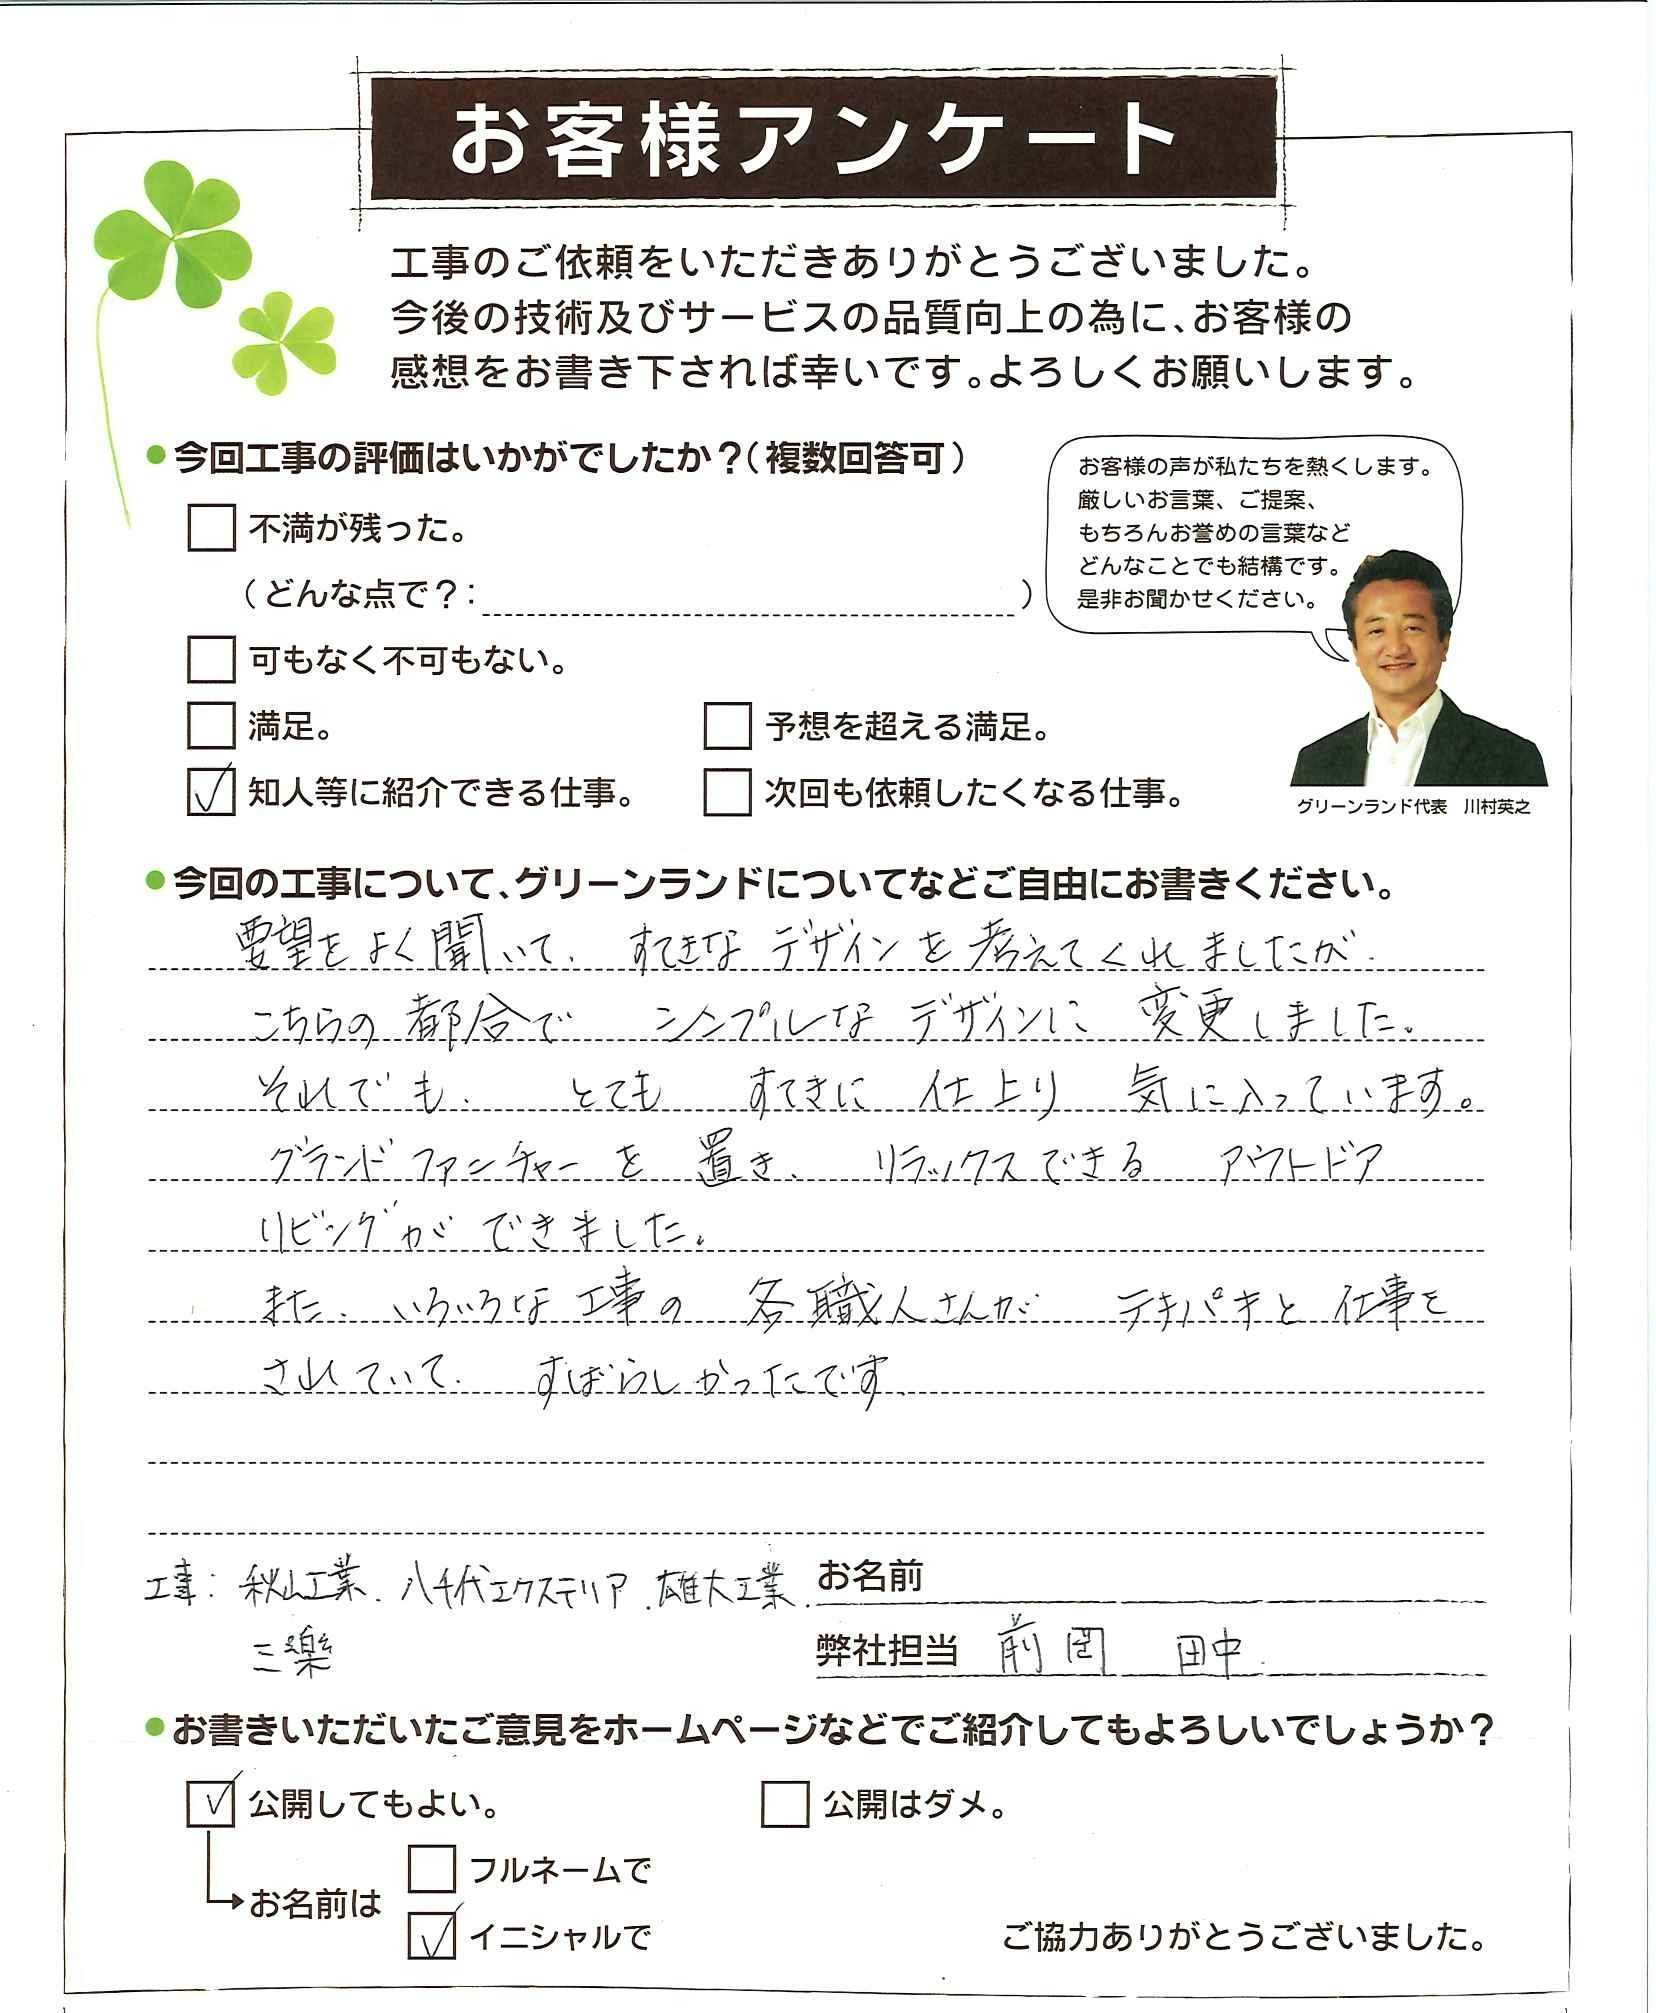 お客様アンケート
工事のご依頼をいただきありがとうございました。
今後の技術及びサービスの品質向上の為に、お客様の
感想をお書き下されば幸いです。よろしくお願いします。
●今回工事の評価はいかがでしたか？（複数回答可）
不満が残った。
（どんな点で？：　　　）
可もなく不可もない。
満足。
予想を超える満足。
知人等に紹介できる仕事。
次回も依頼したくなる仕事。
お客様の声が私たちを熱くします。
厳しいお言葉、ご提案、
もちろんお誉めの言葉など
どんなことでも結構です。
是非お聞かせください。
グリーンランド代表　川村英之
●今回の工事について、グリーンランドについてなどご自由にお書きください。
要望をよく聞いて、すてきなデザインを考えてくれましたが、
こちらの都合で　シンプルなデザインに変更しました。
それでも、とても　すてきに　仕上り　気に入っています。
グランドファニチャーを置き、リラックスできる　アウトドア
リビングができました。
また、いろいろな工事の　各職人さんが　テキパキと仕事を
されていて、すばらしかったです、
工事：秋山工業、八千代エクステリア、雄大工業、
三楽
お名前
弊社担当　前岡　田中
●お書きいただいたご意見をホームページなどでご紹介してもよろしいでしょうか？
公開してもよい。
公開はダメ。
お名前は
フルネームで
イニシャルで
ご協力ありがとうございました。